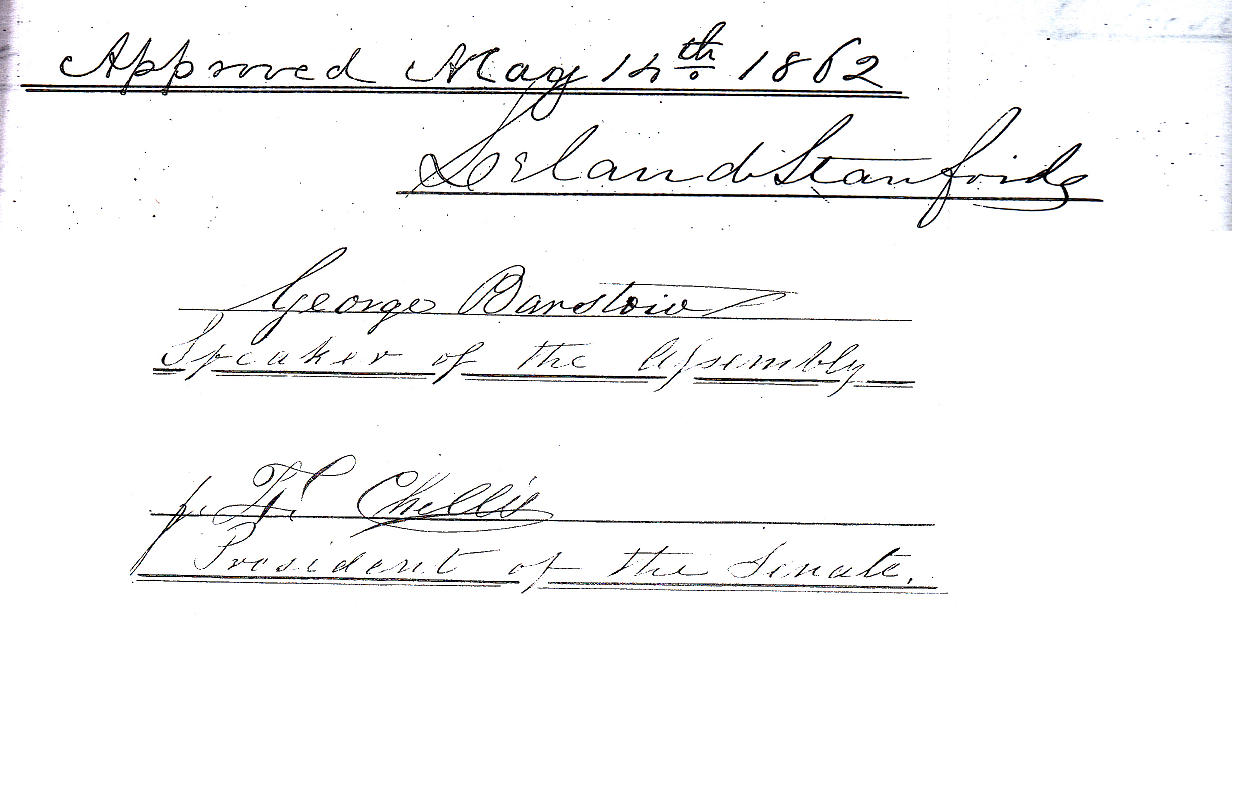 Approved May 14th 1862
Leland Stanford
George Barstow
Speaker of the Assembly
J. F. Chellis
President of the Senate.